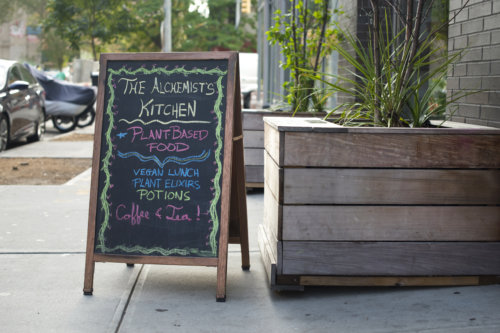 The Alchemist's
Kitchen
Plant Based
Food
Vegan Lunch
Plant Elixirs
Potions
Coffee & Tea!